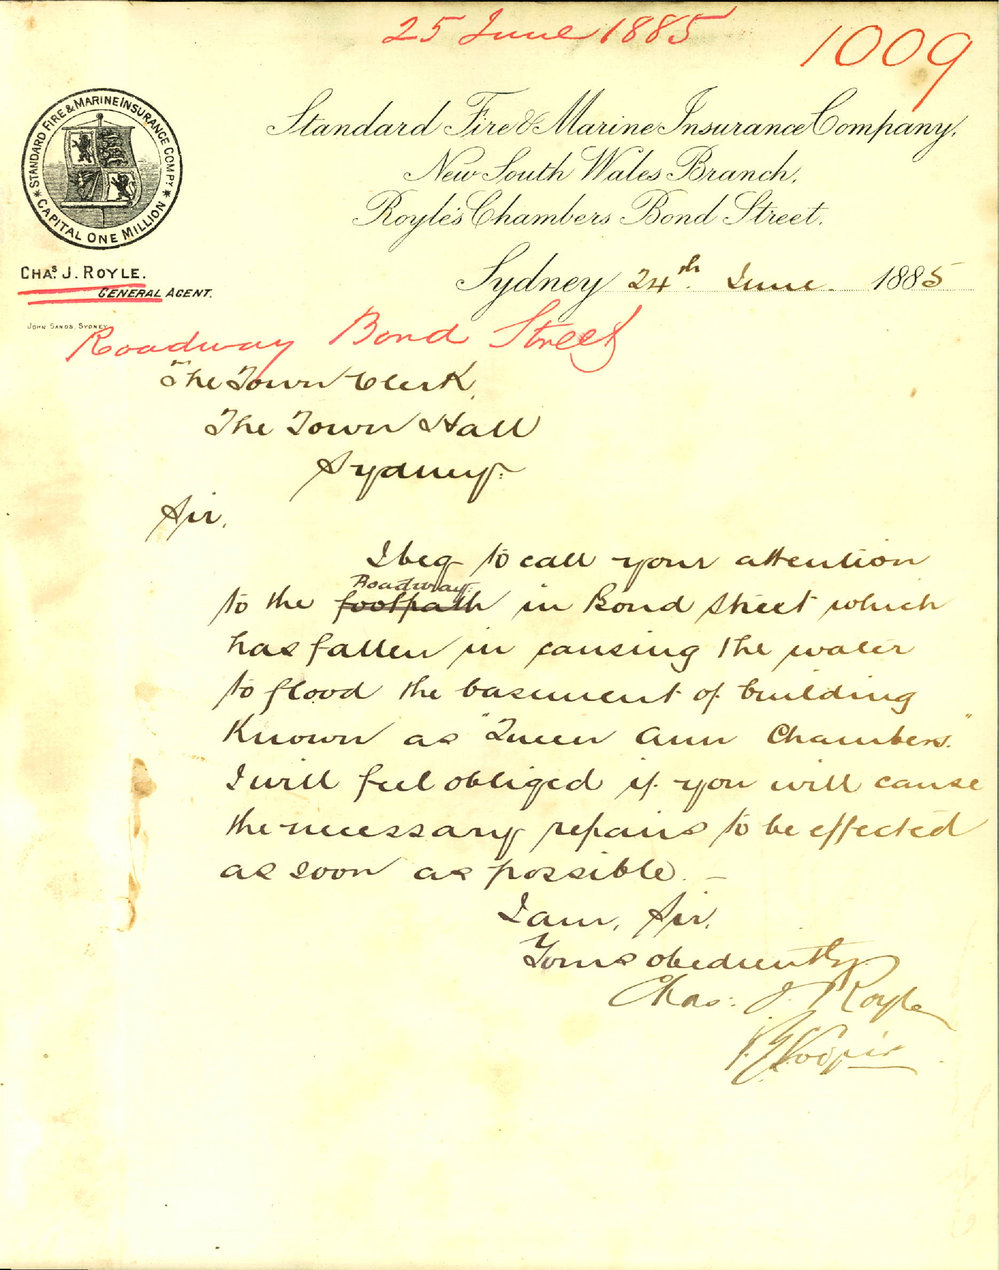 25 June 1885
1009
STANDARD FIRE & MARINE INSURANCE COMPY
* CAPITAL ONE MILLION *
Standard Fire & Marine Insurance Company,
New South Wales Branch,
Royle's Chambers Bond Street.
CHAs. J. ROYLE.
GENERAL AGENT.
Sydney 24th. June 1885
JOHN SANDS, SYDNEY
Roadway Bond Street
The Town Clerk,
The Town Hall
Sydney.
Sir,
I beg to call your attention
Roadway
to the footpath in Bond Street which
has fallen in causing the water
to flood the basement of building
Known as "Queen Ann Chambers"
I will feel obliged if you will cause
the necessary repairs to be effected
as soon as possible. —
I am, Sir,
Yours obediently
Chas: J. Royle